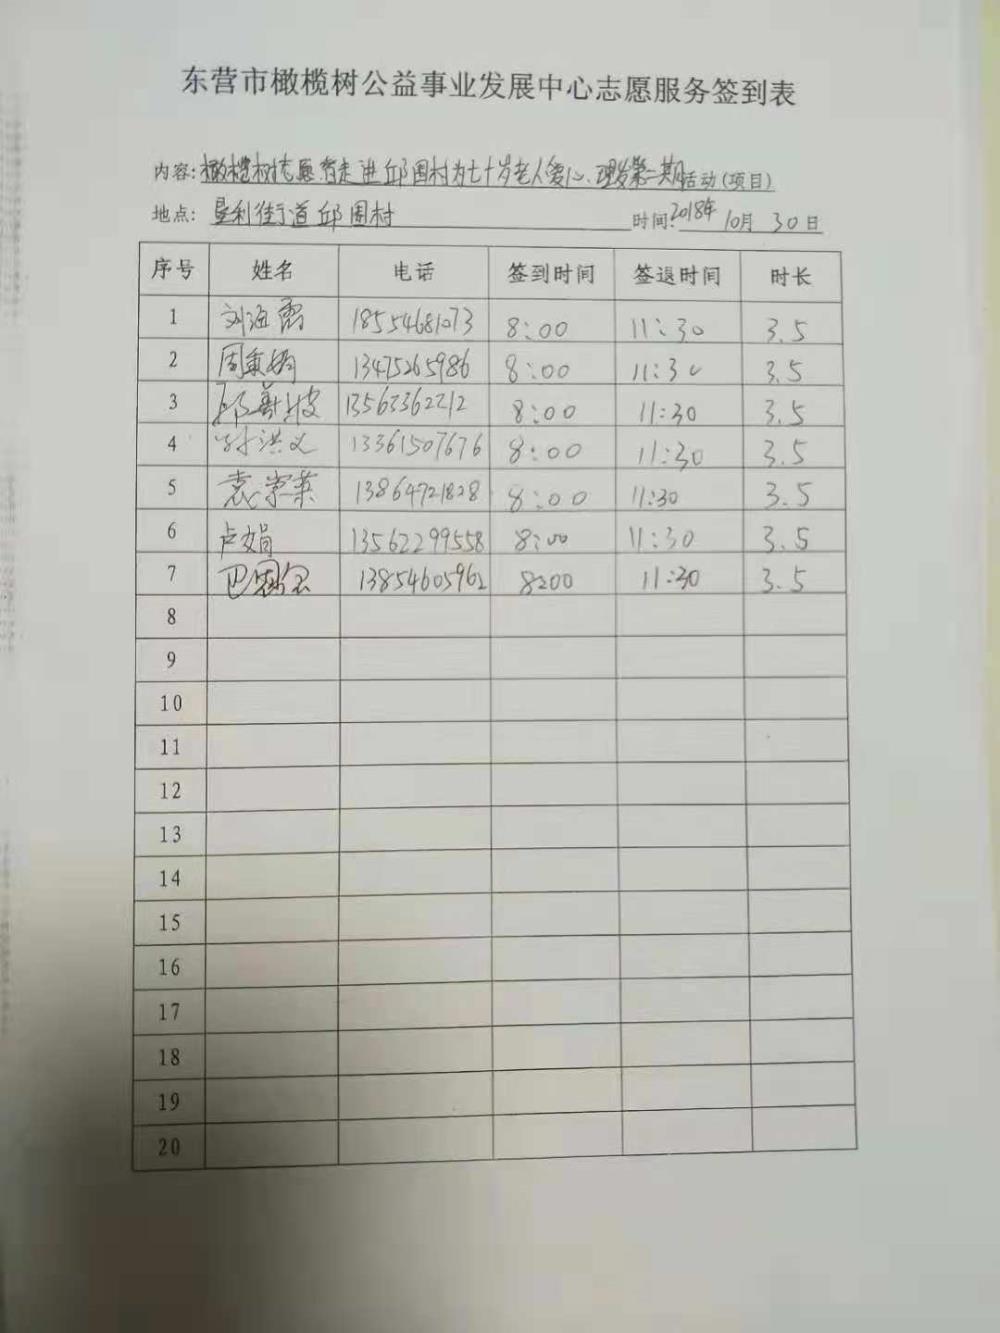 东营市橄榄树公益事业发展中心志愿服务签到表
内容:橄榄树志愿者走进邱围村为七十岁老人爱心、理发第一期活动(项目)
地点:垦利街道邱围村 时间:2018年 10月 30日
序号 姓名 电话 签到时间 签退时间 时长
1 刘海霞 18554681073 8:00 11:30 3.5
2 13475265986 8:00 11:30 3.5
3 13563362212 8:00 11:30 3.5
4 洪义 13361507676 8:00 11:30 3.5
5 袁崇英 13864721828 8:00 11:30 3.5
6 卢娟 13562299558 8:00 11:30 3.5
7 巴 13854605962 8:00 11:30 3.5
8
9
10
11
12
13
14
15
16
17
18
19
20